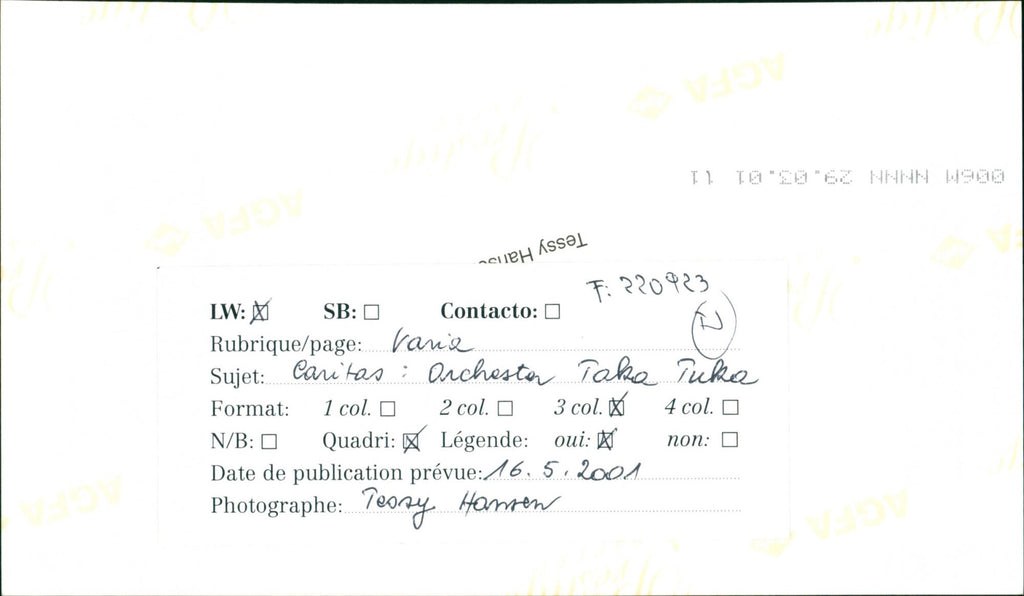 Prestige
Prestige
AGFA
Prestige
006M NNNN 29.03.01 11
AGFA
Tessy Hanse
F: 220923
LW: ☒ SB: ☐ Contacto: ☐
Rubrique/page: Varia
Sujet: Caritas : Orchester Taka Tuka
Format: 1 col. ☐ 2 col. ☐ 3 col. ☒ 4 col. ☐
N/B: ☐ Quadri: ☒ Légende: oui: ☒ non: ☐
Date de publication prévue: 16. 5. 2001
Photographe: Tessy Hansen
AGFA
AGFA
Prestige